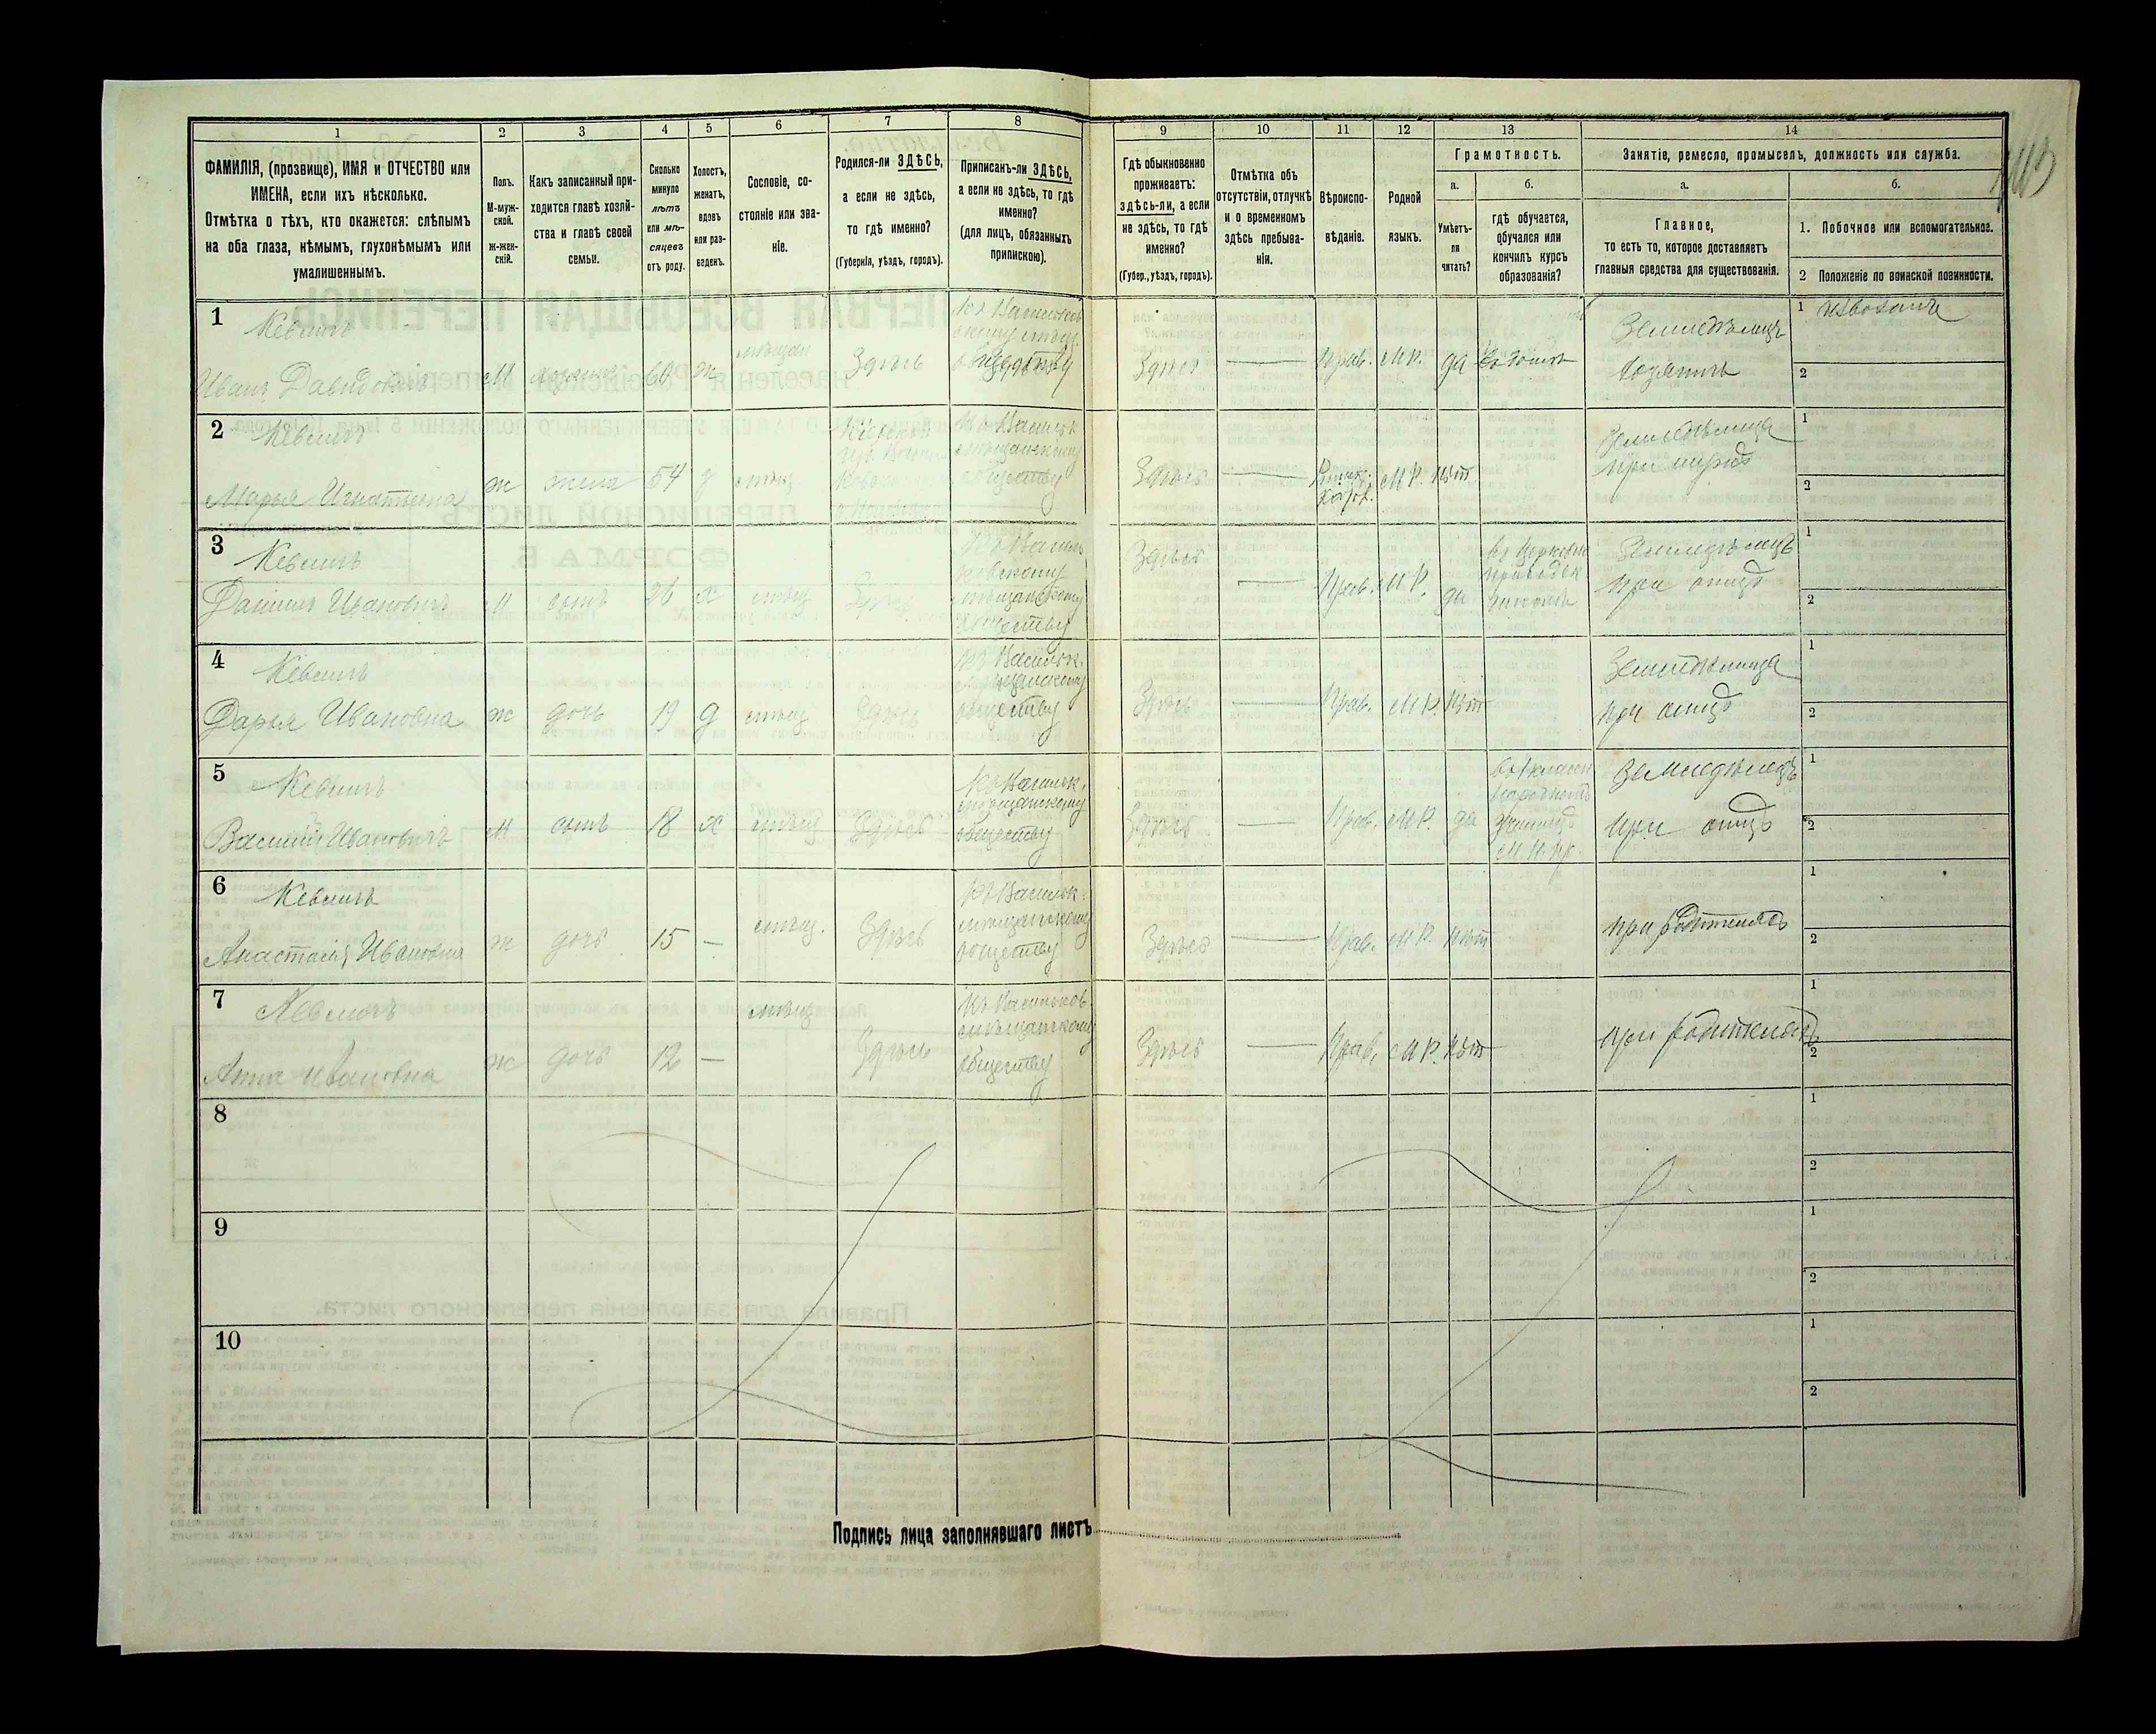 1 2 3 4 5 6 7 8 9 10 11 12 13 14
ФАМИЛІЯ, (прозвище), ИМЯ и ОТЧЕСТВО или
ИМЕНА, если ихъ нѣсколько.
Отмѣтка о тѣхъ, кто окажется: слѣпымъ
на оба глаза, нѣмымъ, глухонѣмымъ или
умалишеннымъ.
Полъ.
М-муж-
ской.
ж-жен-
скій.
Какъ записанный при-
ходится главѣ хозяй-
ства и главѣ своей
семьи.
Сколько
минуло
лѣтъ
или мѣ-
сяцевъ
отъ роду.
Холостъ,
женатъ,
вдовъ
или раз-
веденъ.
Сословіе, со-
стояніе или зва-
ніе.
Родился-ли ЗДѢСЬ,
а если не здѣсь,
то гдѣ именно?
(Губернія, уѣздъ, городъ).
Приписанъ-ли ЗДѢСЬ,
а если не здѣсь, то гдѣ
именно?
(для лицъ, обязанныхъ
припискою).
Гдѣ обыкновенно
проживаетъ:
здѣсь-ли, а если
не здѣсь, то гдѣ
именно?
(Губер., уѣздъ, городъ).
Отмѣтка объ
отсутствіи, отлучкѣ
и о временномъ
здѣсь пребыва-
ніи.
Вѣроиспо-
вѣданіе.
Родной
языкъ.
Грамотность.
а.
Умѣетъ-
ли
читать?
б.
гдѣ обучается,
обучался или
кончилъ курсъ
образованія?
Занятіе, ремесло, промыселъ, должность или служба.
а.
Главное,
то есть то, которое доставляетъ
главныя средства для существованія.
б.
1. Побочное или вспомогательное.
2 Положеніе по воинской повинности.
1
Иванъ Давидовичъ
М
60
ж
Здѣсь
обществу
Здѣсь
—
Прав.
М Р.
да
Земледѣлецъ
хозяинъ
1
2
2
Марья Игнатьевна
ж
жена
54
з
мѣщ
мѣщанскому
обществу
Здѣсь
—
М Р.
нѣт
Земледѣлица
при мужѣ
1
2
3
Даніилъ Ивановичъ
М
сынъ
26
х
мѣщ
Здѣсь
мѣщанскому
обществу
Здѣсь
—
Прав.
М Р.
да
Земледѣлецъ
при отцѣ
1
2
4
Дарья Ивановна
ж
дочь
19
д
мѣщ
Здѣсь
Къ Васильк.
мѣщанскому
обществу
Здѣсь
—
Прав.
М Р.
нѣт
Земледѣлица
при отцѣ
1
2
5
Василій Ивановичъ
М
сынъ
18
х
мѣщ
Здѣсь
Къ Васильк.
мѣщанскому
обществу
Здѣсь
—
Прав.
М Р.
да
М. Н. Пр.
Земледѣлецъ
при отцѣ
1
2
6
Анастасія Ивановна
ж
дочь
15
—
мѣщ.
Здѣсь
Къ Васильк.
мѣщанскому
обществу
Здѣсь
—
Прав.
М Р.
нѣт
при родителяхъ
1
2
7
Анна Ивановна
ж
дочь
12
—
мѣщ
Здѣсь
Къ Васильков.
мѣщанскому
обществу
Здѣсь
—
Прав.
М Р.
нѣт
при родителяхъ
1
2
8
1
2
9
1
2
10
1
2
Подпись лица заполнявшаго листъ